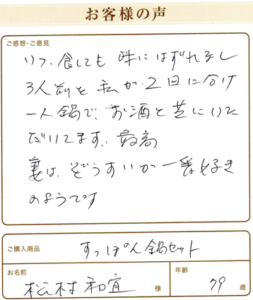 お客様の声
ご感想・ご意見
いつ食しても 味にはずれなし
3人前を私が2日に分け
一人鍋で、お酒と共にいた
だいてます。最高
妻は、ぞうすいが一番好き
のようです
ご購入商品
すっぽん鍋セット
お名前
松村 和宜 様
年齢
79 歳